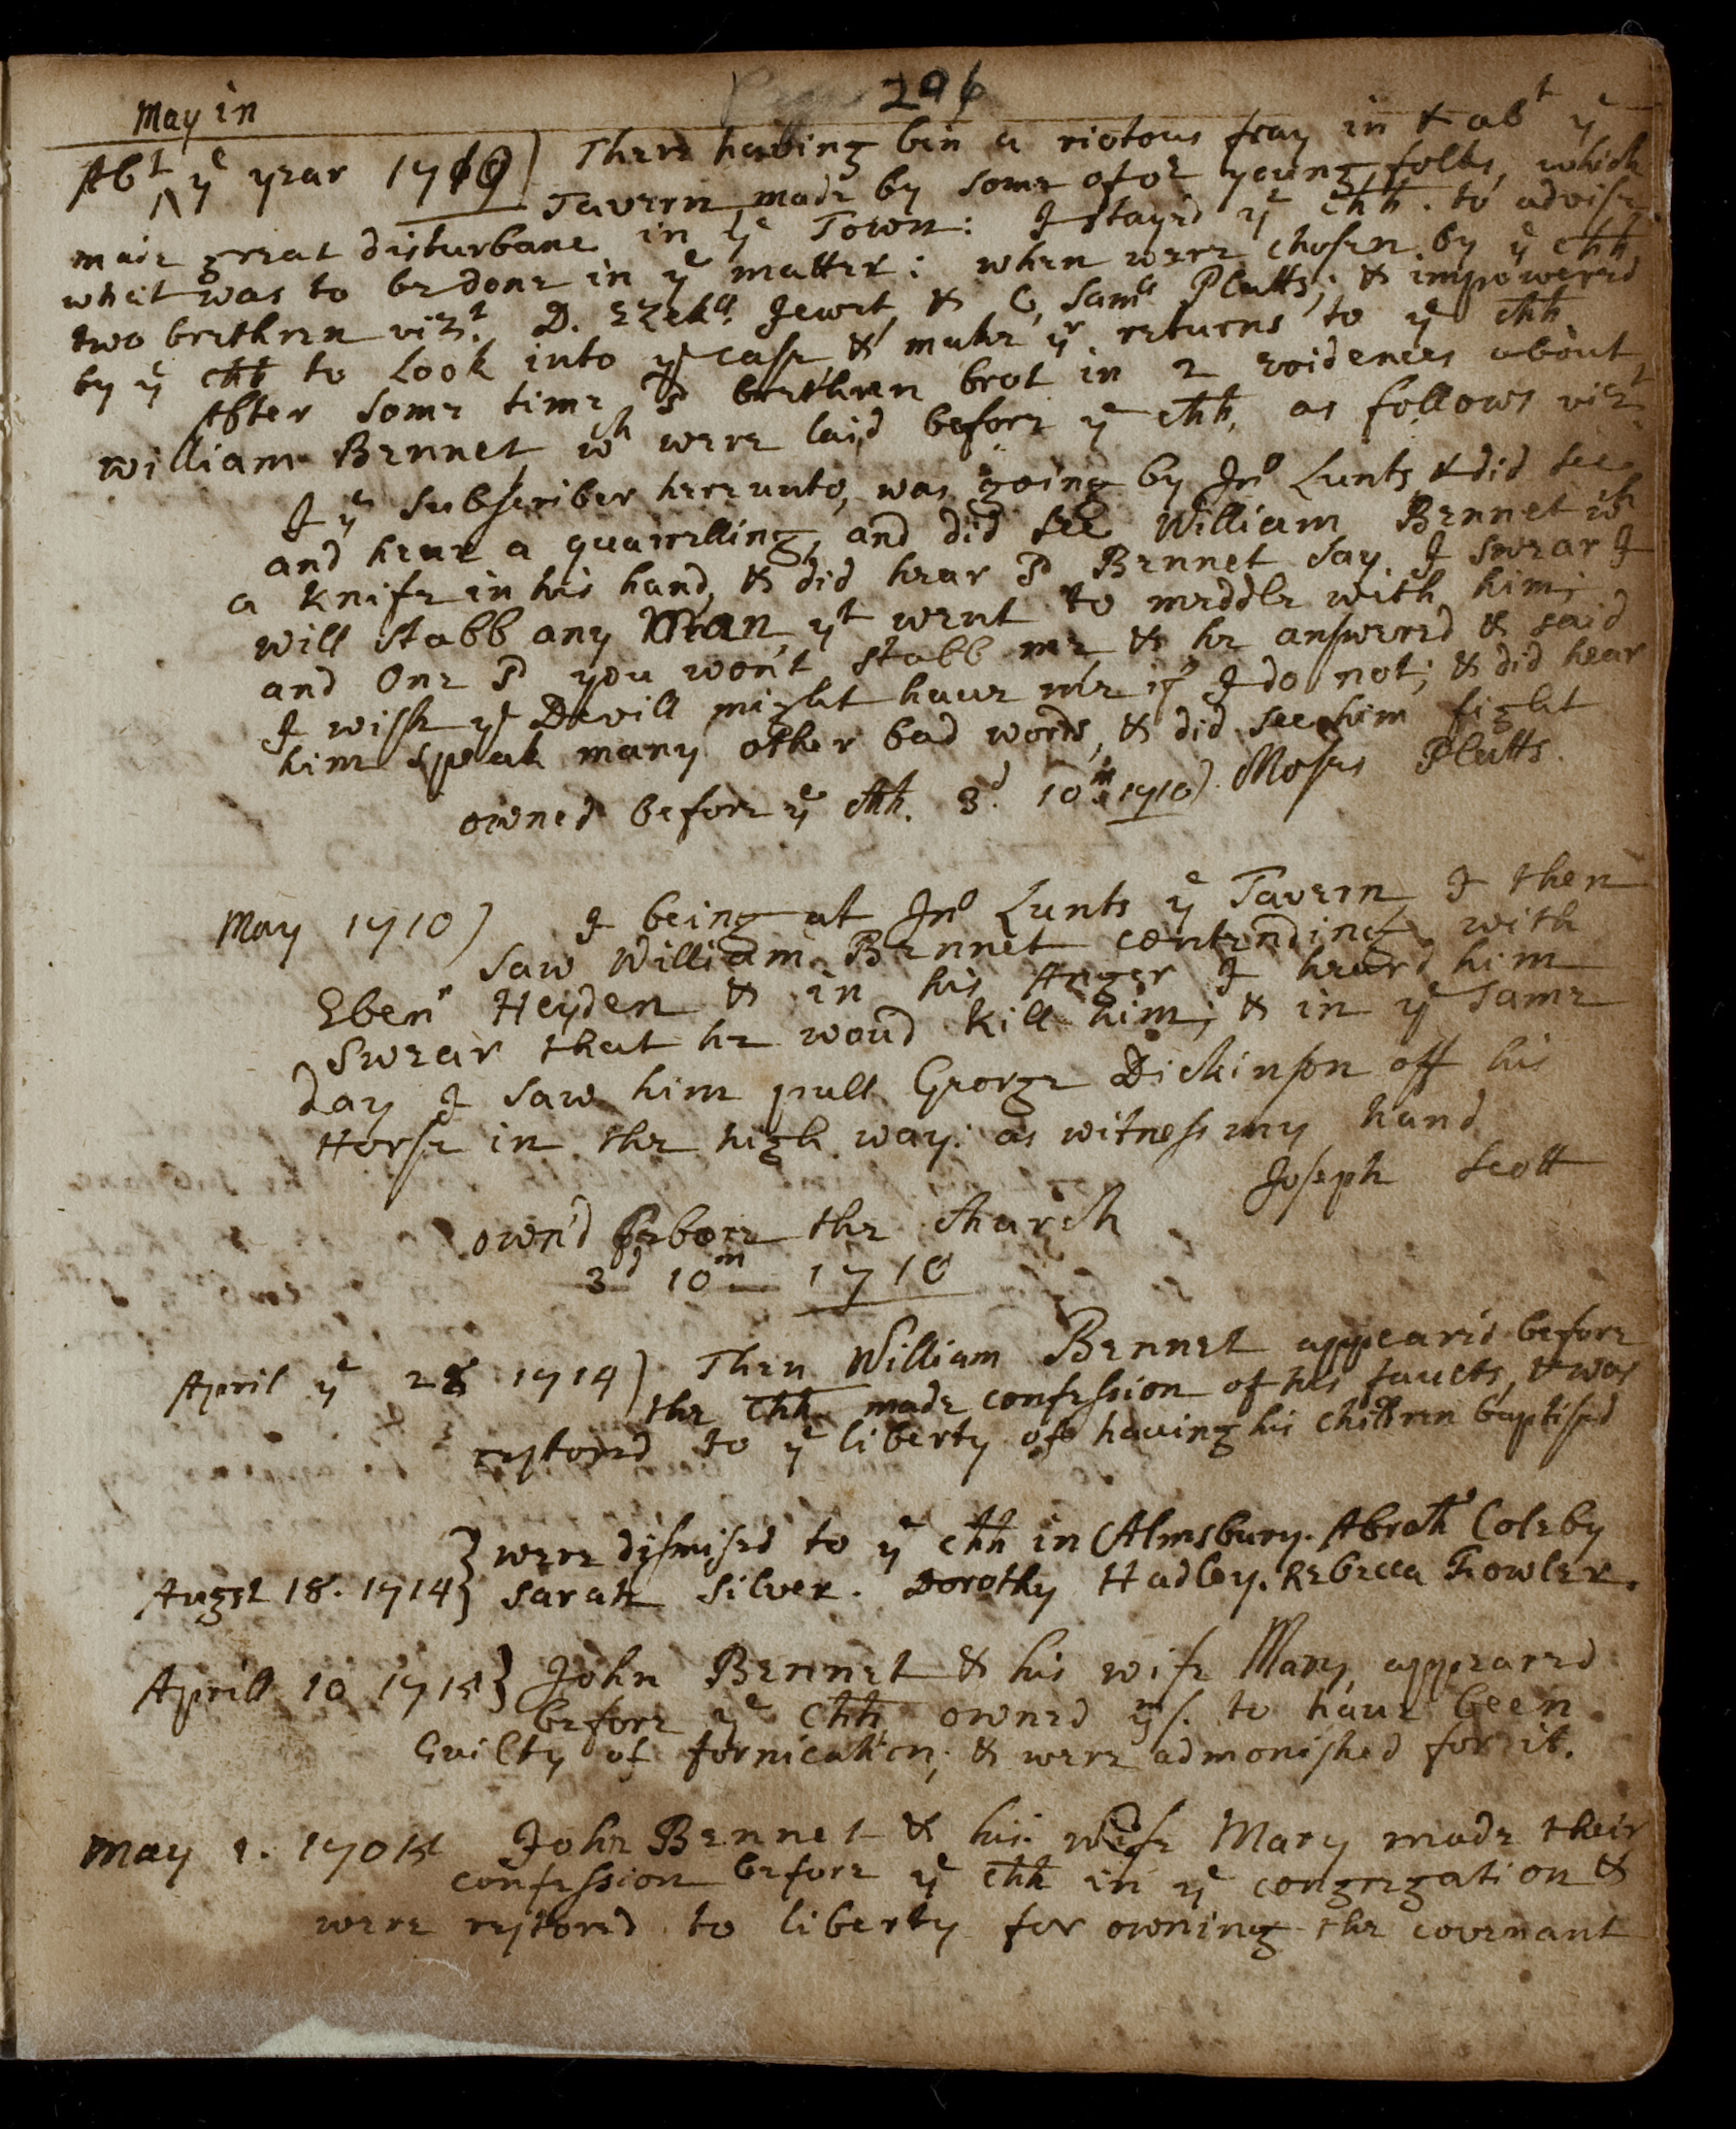 296
May in
Abt ye year 1710) There haveing bin a riotous fray in & abt ye
Tavern made by some of or young folks, which
made great disturbane in ye Town: I stayd ye Chh. to advise
what was to be done in ye matter: when were chosen by ye Chh
two brethren vizt D. Ezekll Jewet & C, Samll Platts; & impowered
by ye Chh to Look into ye case, & make yr returns to ye Chh
After some time sd brethren brot in 2 evidences about
William Bennet wh were laid before ye Chh. as follows vizt
I ye Subscriber hereunto, was going by Jno Lunts & did see
and hear a quarrelling, and did see William Bennet wth
a knife in his hand, & did hear sd Bennet say. I swear I
will stabb any Man yt went to meddle with him;
and One sd you won't stabb me & he answered & said
I wish ye Devill might have me if I do not; & did hear
him speak many other bad words, & did see him fight
owned before ye Chh. 3d 10m 1710) Moses Platts.
May 1710) I being at Jno Lunts ye Tavern I then
saw William Bennet contending with
Ebenr Heyden & in his Anger I heard him
swear that he woud kill him; & in ye same
day I saw him pull George Dickinson off his
Horse in the high way: as witness my hand
Joseph Scott
own'd before the Church
3d 10m 1710
April ye 28 1714) Then William Bennet appear'd before
the Chh made confession of his faults, & was
restored to ye liberty of having his children baptised
} were dismised to ye Chh in Almsbury. Abrah Coleby
Augst 18. 1714} Sarah Silver. Dorothy Hadley. Rebecca Fowler.
Aprill 10 1715} John Bennet & his wife Mary appeared
before ye Chh owned ys. to have been
Guilty of fornication; & were admonished for it.
May 1. 1715 John Bennet & his wife Mary made their
confession before ye Chh in ye congregation &
were restored to liberty for owning the covenant